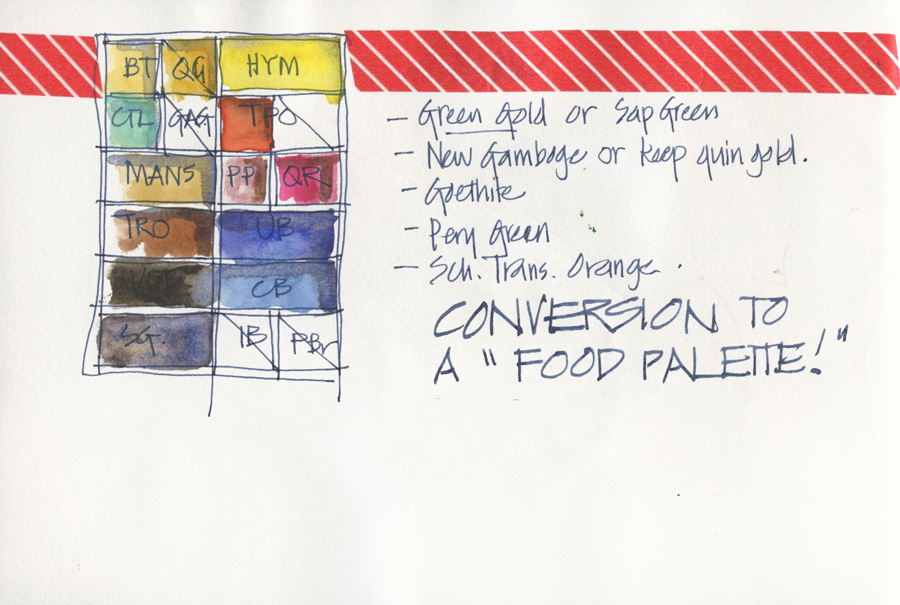 BT QG HYM
CTL GAG TPO
MANS PP QR
TRO UB
CB
SG. IB PBr
— Green Gold or Sap Green
— New Gamboge or keep quin gold.
— Goethite
— Pery Green
— Sch. Trans. Orange.
CONVERSION TO
A "FOOD PALETTE!"